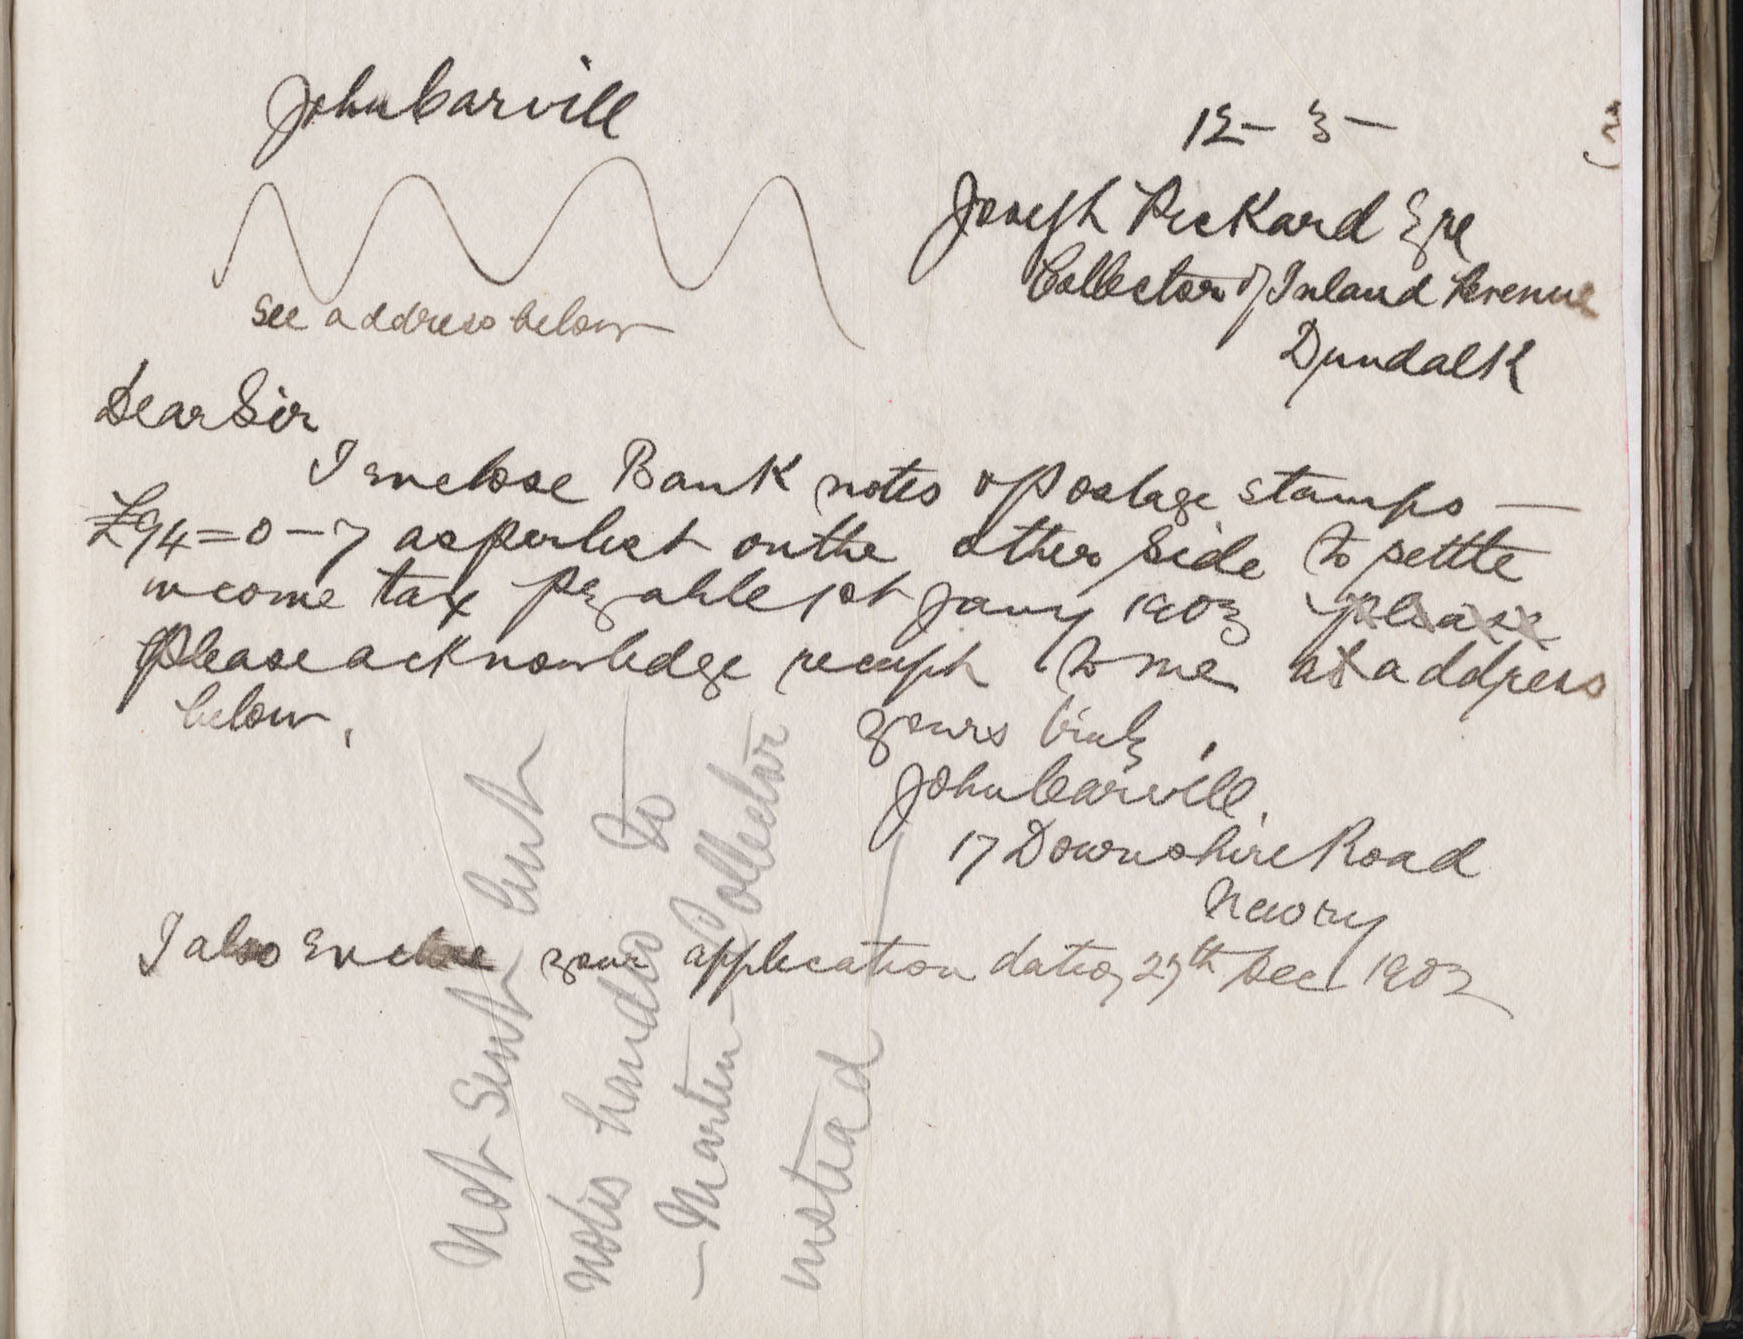 John Carvill
12 - 3 - 3
Joseph Pickard Esqe
Collector of Inland Revenue
Dundalk
see address below
Dear Sir
I enclose Bank notes & Postage stamps —
£94=0-7 as per list on the other side to settle
income tax payable 1st Jany 1903 please
Please acknowledge receipt to me at address
below,
yours truly,
John Carvill,
17 Downshire Road
Newry
I also enclose your application dated 29th Dec 1902
Not Sent but
notes handed to
— Martin — Collector
instead